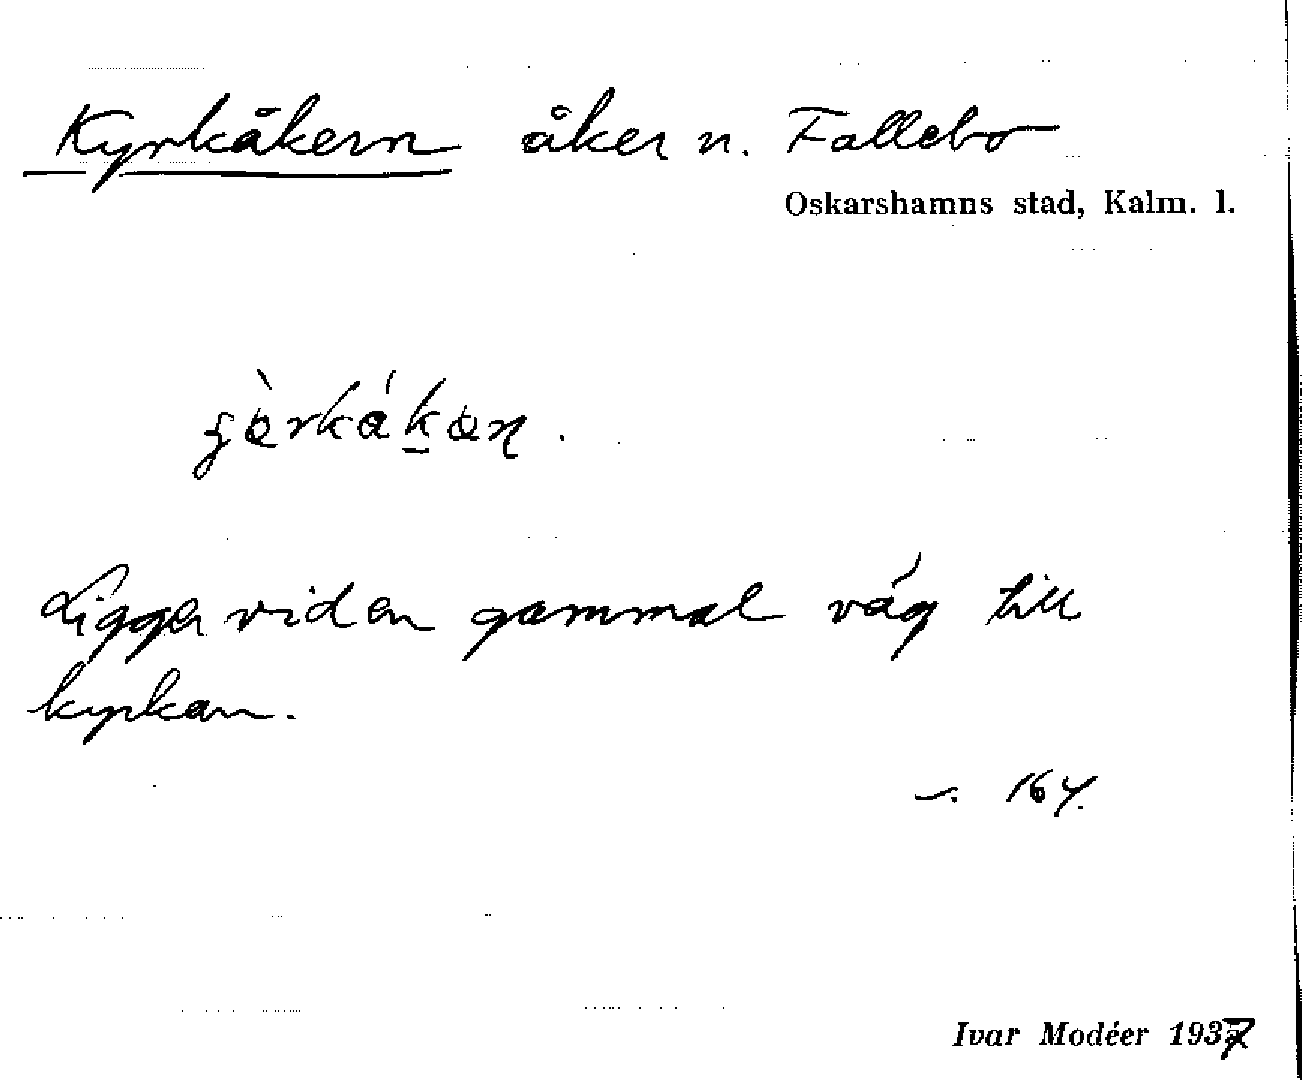 Kyrkåkern åker n. Fallebo
Oskarshamns stad, Kalm. l.
Ligger vid en gammal väg till
kyrkan.
167.
Ivar Modéer 1937